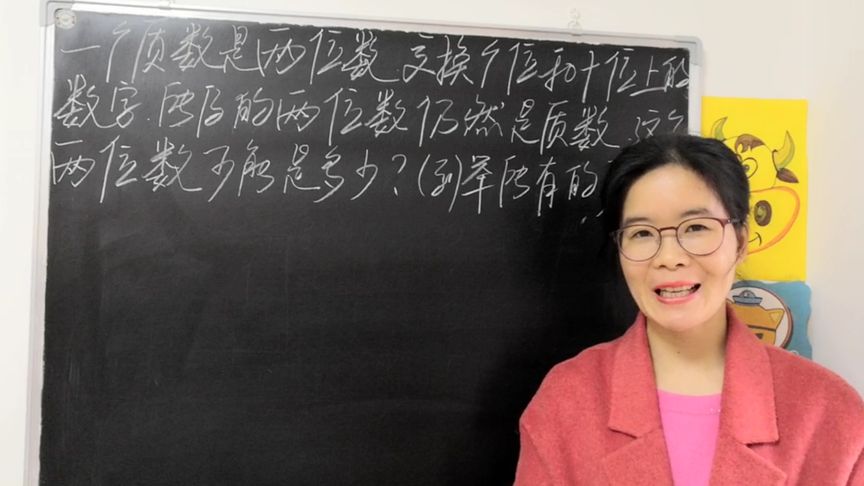 一个质数是两位数,交换个位和十位上的
数字.所得的两位数仍然是质数.这个
两位数可能是多少?(列举所有的